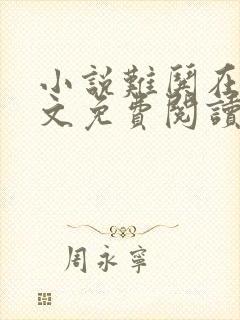 小說難哭在
文免費閱讀
周永寧